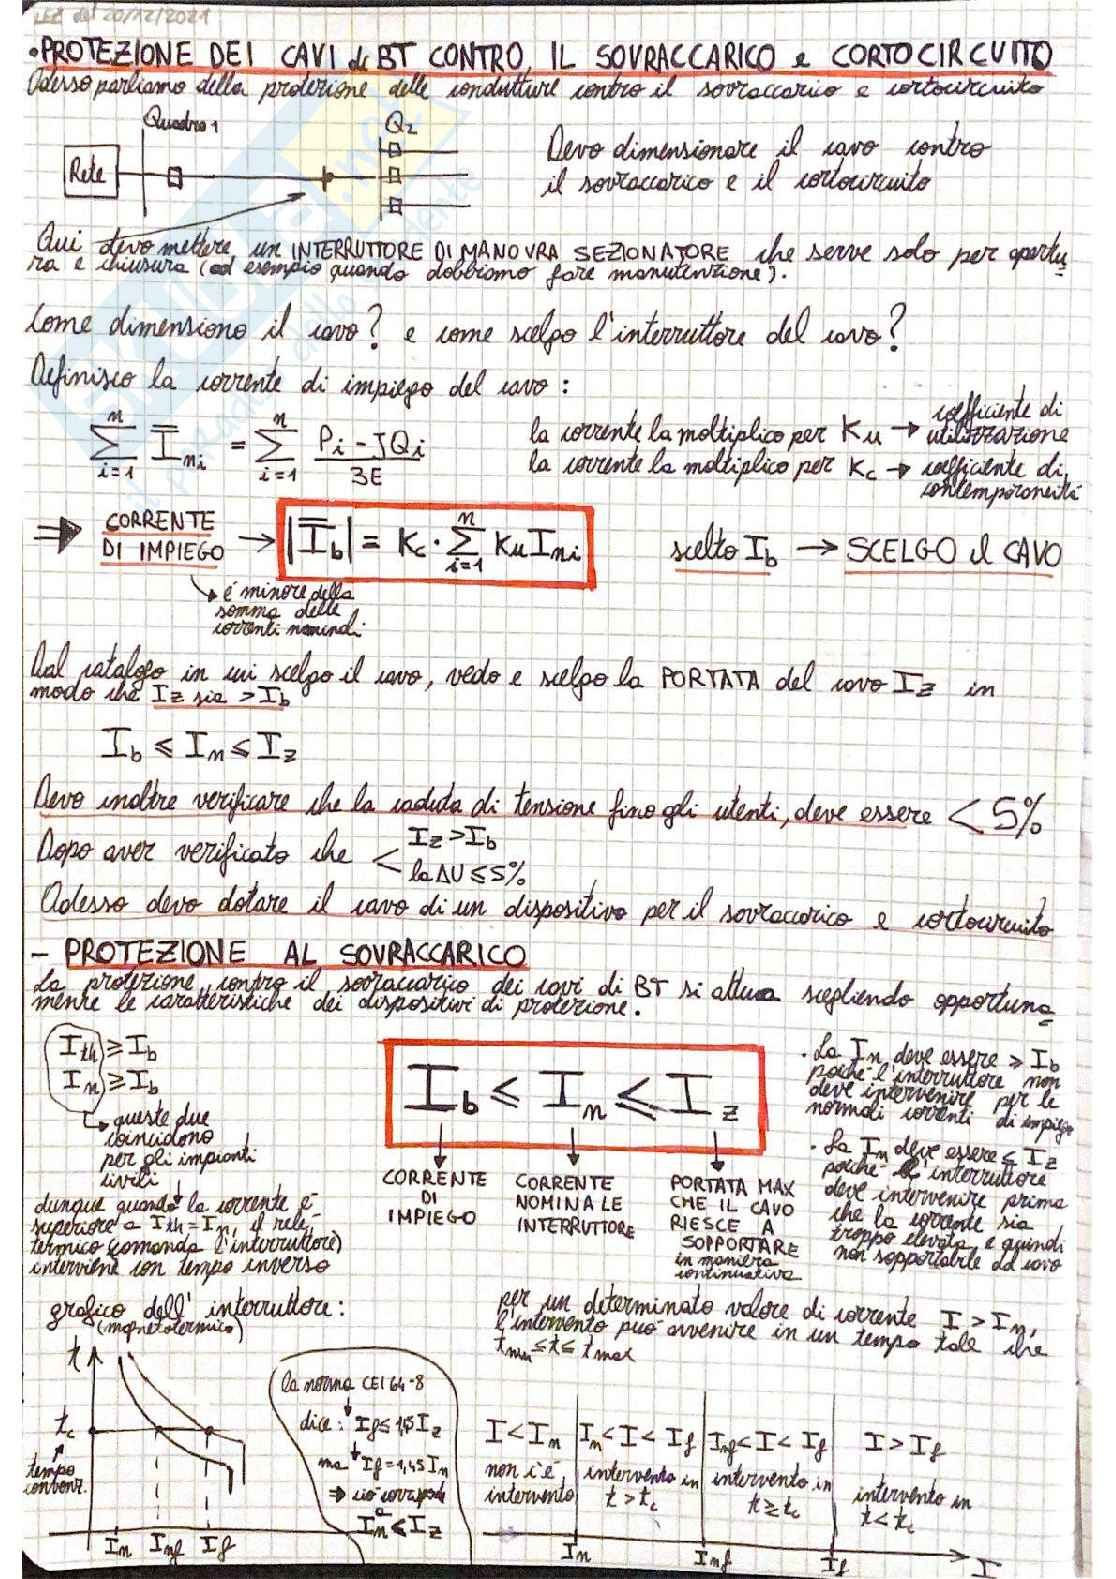 LEZ del 20/12/2021
•PROTEZIONE DEI CAVI di BT CONTRO IL SOVRACCARICO e CORTOCIRCUITO
Adesso parliamo della protezione delle condutture contro il sovraccarico e cortocircuito
Quadro 1
Q2
Rete
Devo dimensionare il cavo contro
il sovraccarico e il cortocircuito
Qui devo mettere un INTERRUTTORE DI MANOVRA SEZIONATORE che serve solo per apertu
ra e chiusura (ad esempio quando dobbiamo fare manutenzione).
Come dimensiono il cavo? e come scelgo l'interruttore del cavo?
Definisco la corrente di impiego del cavo:
∑_{i=1}^{n} I_{ni} = ∑_{i=1}^{n} (Pi - JQi)/3E
la corrente la moltiplico per Ku → coefficiente di utilizzazione
la corrente la moltiplico per Kc → coefficiente di contemporaneità
⇒ CORRENTE DI IMPIEGO → |I_b| = Kc · ∑_{i=1}^{n} Ku I_{ni}
scelto Ib → SCELGO il CAVO
è minore della
somma delle
correnti nominali
Dal catalogo in cui scelgo il cavo, vedo e scelgo la PORTATA del cavo Iz in
modo che Iz sia > Ib
Ib ≤ In ≤ Iz
Devo inoltre verificare che la caduta di tensione fino gli utenti, deve essere < 5%
Dopo aver verificato che < Iz > Ib
la ΔU ≤ 5%
Adesso devo dotare il cavo di un dispositivo per il sovraccarico e cortocircuito
- PROTEZIONE AL SOVRACCARICO
La protezione contro il sovraccarico dei cavi di BT si attua scegliendo opportuna
mente le caratteristiche dei dispositivi di protezione.
Ith ≥ Ib
In ≥ Ib
queste due
coincidono
per gli impianti
civili
dunque quando la corrente è
superiore a Ith = In, il relè
termico (comanda l'interruttore)
interviene con tempo inverso
Ib ≤ In ≤ Iz
CORRENTE
DI
IMPIEGO
CORRENTE
NOMINALE
INTERRUTTORE
PORTATA MAX
CHE IL CAVO
RIESCE A
SOPPORTARE
in maniera
continuativa
· La In deve essere ≥ Ib
poiché l'interruttore non
deve intervenire per le
normali correnti di impiego
· La In deve essere ≤ Iz
poiché l'interruttore
deve intervenire prima
che la corrente sia
troppo elevata e quindi
non sopportabile dal cavo
grafico dell'interruttore:
(magnetotermico)
per un determinato valore di corrente I > In,
l'intervento può avvenire in un tempo tale che
tmin ≤ t ≤ tmax
t
tc
tempo
convenz.
In Inf If
la norma CEI 64-8
dice: If ≤ 1,45 Iz
ma If = 1,45 In
⇒ ciò corrisponde
a
In ≤ Iz
I < In
non c'è
intervento
In < I < If
intervento in
t > tc
Inf < I < If
intervento in
t ≷ tc
I > If
intervento in
t < tc
In
Inf
If
I